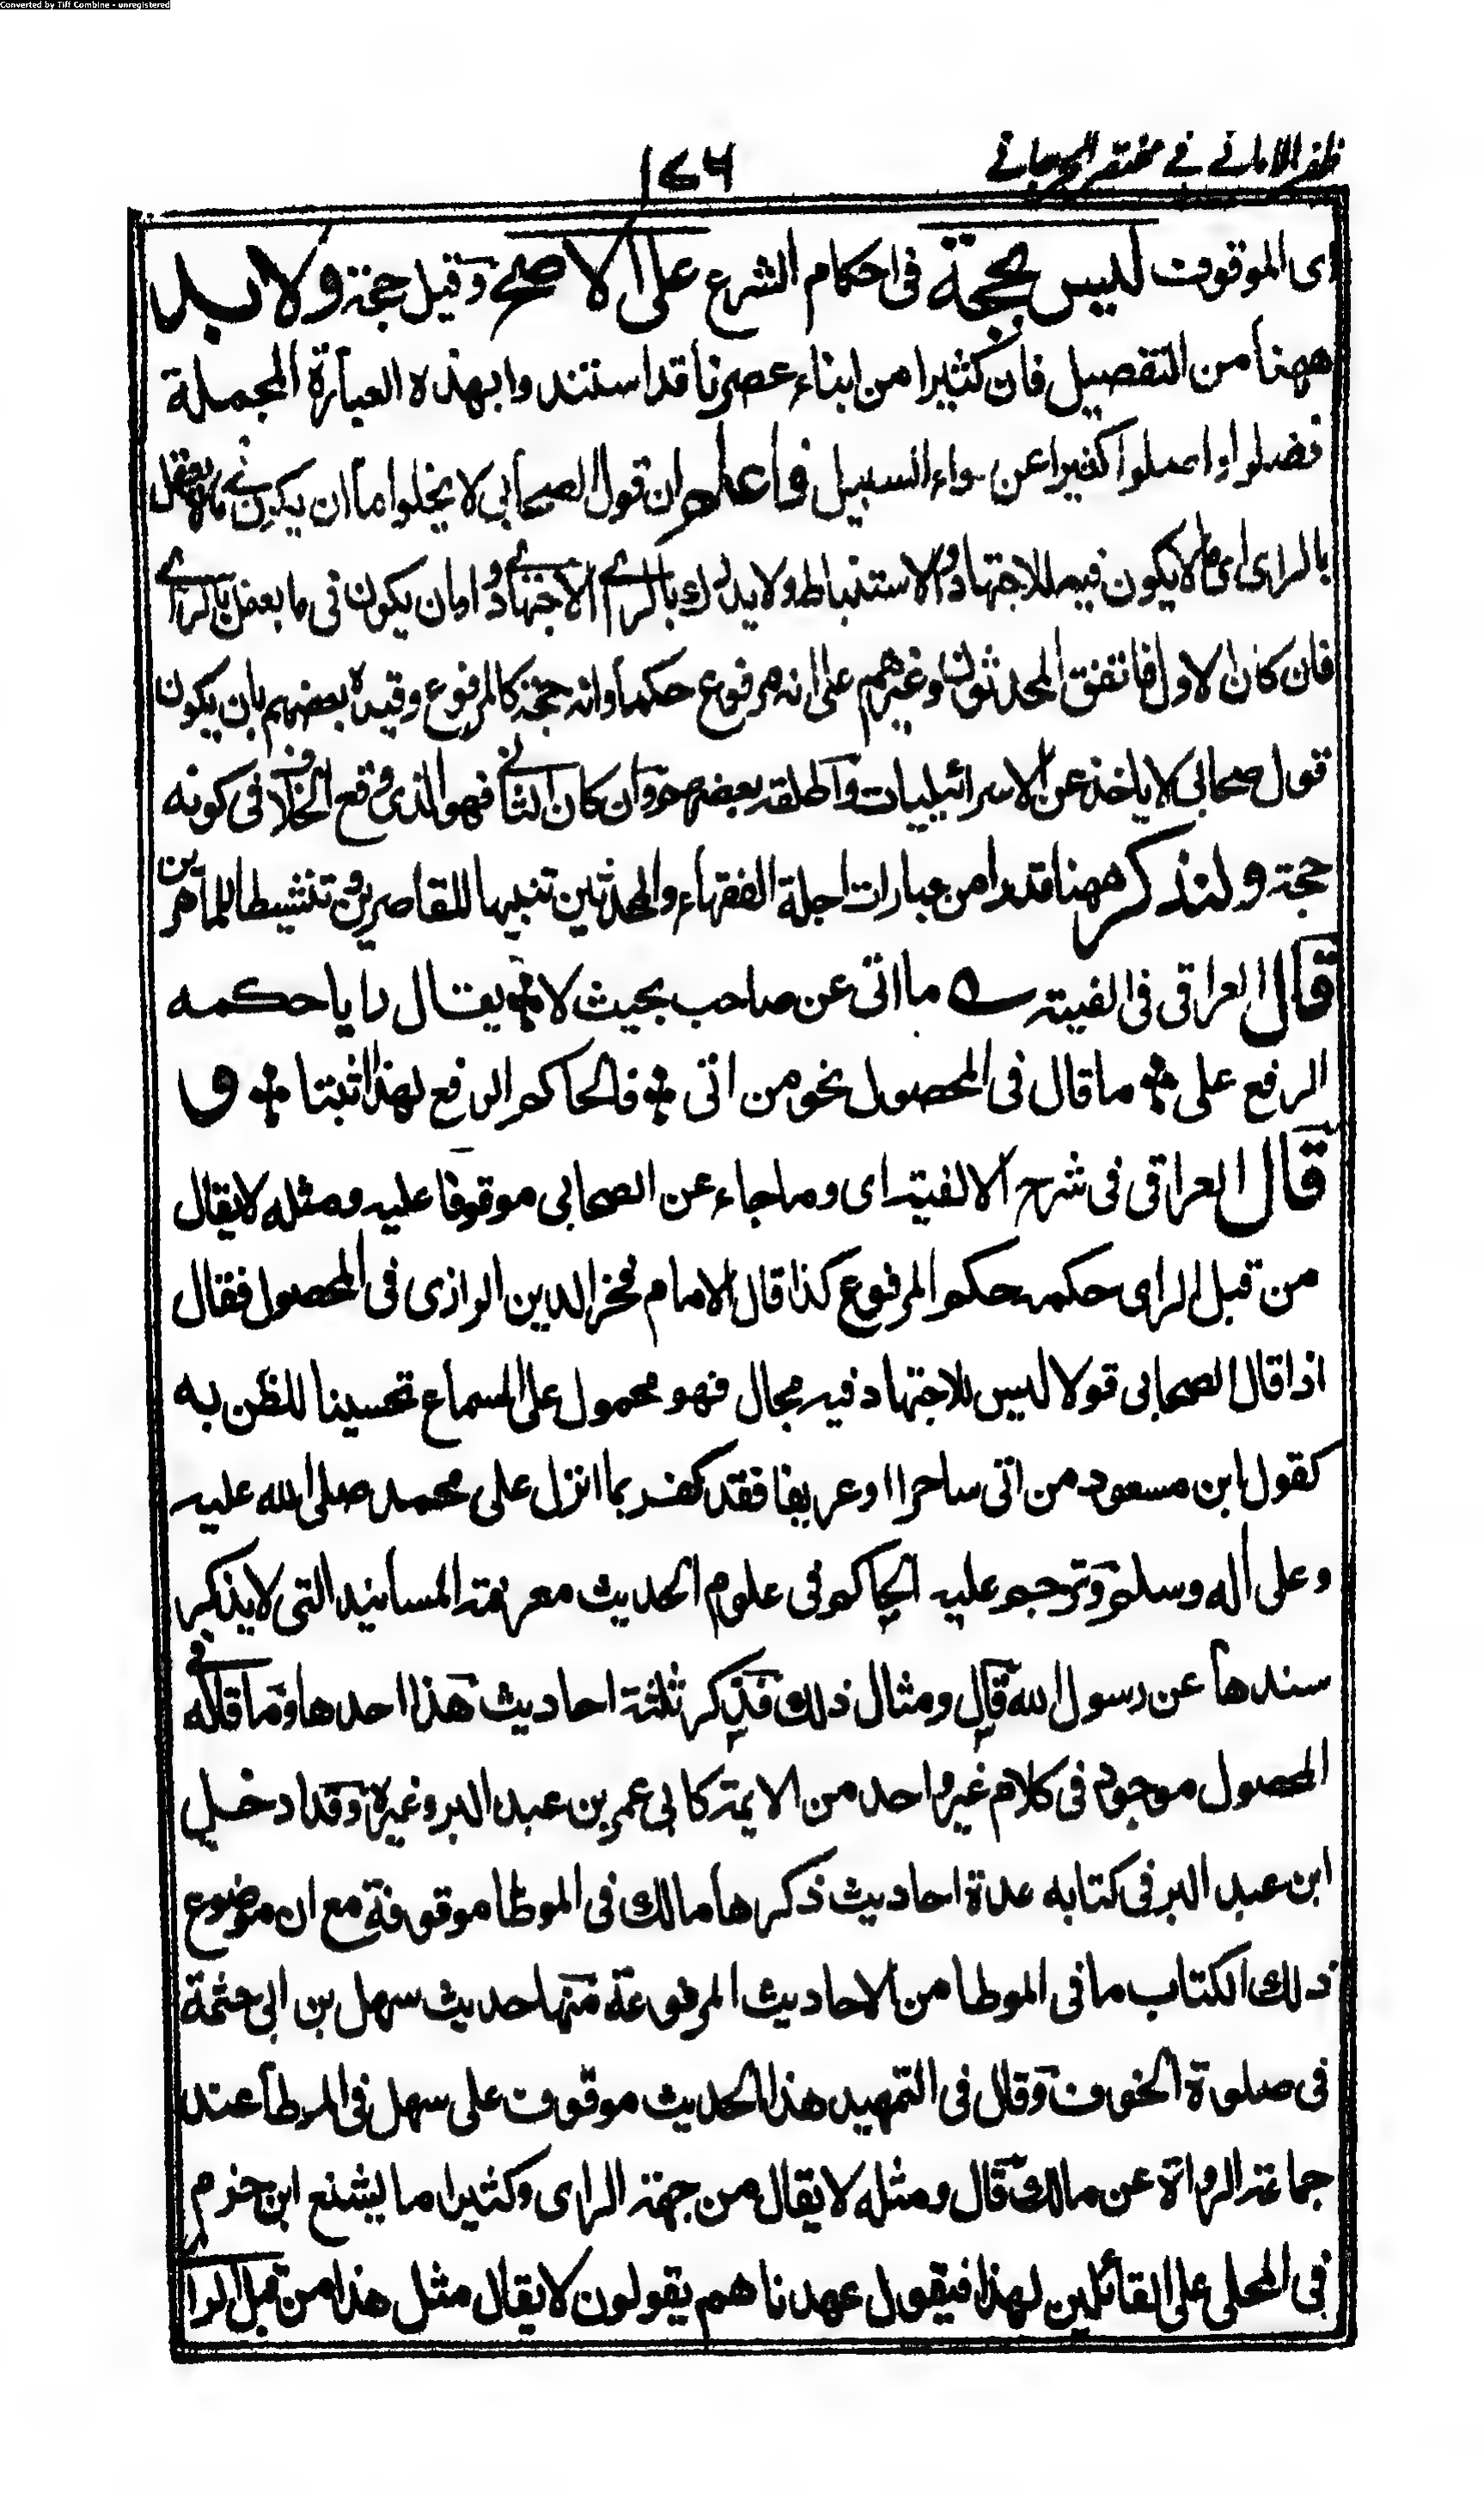 Converted by Tiff Combine - unregistered
ظفر الامانی فی مختصر الجرجانی
۱۷۶
ای الموقوف لیس بحجة فی احکام الشرع علی الاصح وقیل حجة ولابد
ههنا من التفصیل فان کثیرا من ابناء عصرنا قد استندوا بهذه العبارة المجملة
فضلوا واضلوا کثیرا عن سواء السبیل واعلم ان قول الصحابی لا یخلوا ما ان یکون فی ما لا یعقل
بالرای ای ما لا یکون فیه للاجتهاد والاستنباط ولا یدرك بالرای والاجتهاد واما ان یکون فی ما یعقل بالرای
فان کان الاول فاتفق المحدثون وغیرهم علی انه مرفوع حکما وانه حجة کالمرفوع وقیده بعضهم بان یکون
قول صحابی لا یاخذ عن الاسرائیلیات واطلقه بعضهم وان کان الثانی فهو الذی وقع الخلاف فی کونه
حجة ولنذکر ههنا قدرا من عبارات اجلة الفقهاء والمحدثین تنبیها للقاصرین وتنشیطا للماهرین
قال العراقی فی الفیته ؎ ما اتی عن صاحب بحیث لا ٭ یقال رایا حکمه
الرفع علی ٭ ما قال فی المحصول نحو من اتی ٭ فالحاکم الرفع لهذا اثبتا ٭ و
قال العراقی فی شرح الالفیة ای وما جاء عن الصحابی موقوفا علیه ومثله لا یقال
من قبل الرای حکمه حکم المرفوع کذا قال الامام فخر الدین الرازی فی المحصول فقال
اذا قال الصحابی قولا لیس للاجتهاد فیه مجال فهو محمول علی السماع تحسینا للظن به
کقول ابن مسعود من اتی ساحرا او عریفا فقد کفر بما انزل علی محمد صلی الله علیه
وعلی اله وسلم وترجم علیه الحاکم فی علوم الحدیث معرفة المسانید التی لا یذکر
سندها عن رسول الله قال ومثال ذلك فذکر ثلثة احادیث هذا احدها وما قاله فی
المحصول موجود فی کلام غیر واحد من الایمة کابی عمر بن عبد البر وغیره وقد ادخل
ابن عبد البر فی کتابه عدة احادیث ذکرها مالك فی الموطا موقوفة مع ان موضوع
ذلك الکتاب ما فی الموطا من الاحادیث المرفوعة منها حدیث سهل بن ابی حثمة
فی صلوة الخوف وقال فی التمهید هذا الحدیث موقوف علی سهل فی الموطا عند
جماعة الرواة عن مالك قال ومثله لا یقال من جهة الرای وکثیرا ما یشنع ابن حزم
فی المحلی علی القائلین لهذا فیقول عهدناهم یقولون لا یقال مثل هذا من قبل الرای